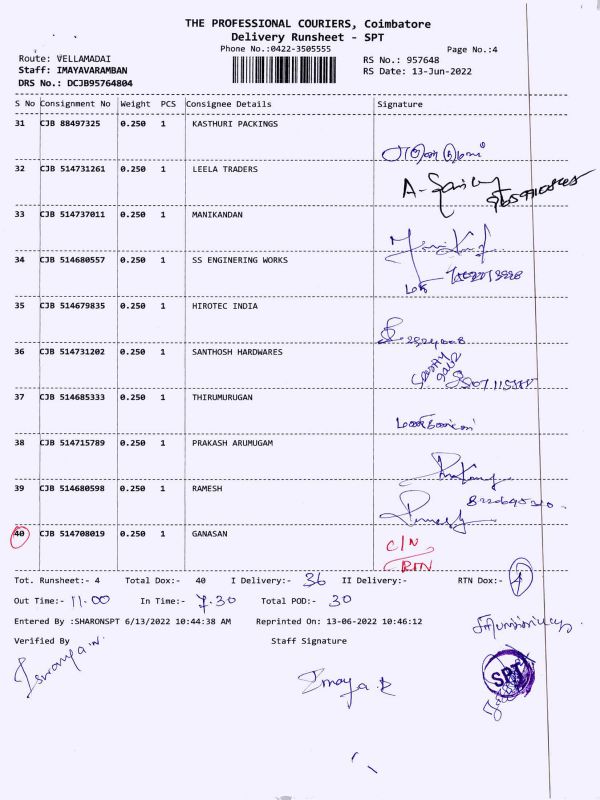 THE PROFESSIONAL COURIERS, Coimbatore
Delivery Runsheet - SPT
Phone No.:0422-3505555
Page No.:4
Route: VELLAMADAI
RS No.: 957648
Staff: IMAYAVARAMBAN
RS Date: 13-Jun-2022
DRS No.: DCJB95764804
S No Consignment No Weight PCS Consignee Details Signature
31 CJB 88497325 0.250 1 KASTHURI PACKINGS
32 CJB 514731261 0.250 1 LEELA TRADERS
33 CJB 514737011 0.250 1 MANIKANDAN
34 CJB 514680557 0.250 1 SS ENGINERING WORKS
35 CJB 514679835 0.250 1 HIROTEC INDIA
36 CJB 514731202 0.250 1 SANTHOSH HARDWARES
37 CJB 514685333 0.250 1 THIRUMURUGAN
38 CJB 514715789 0.250 1 PRAKASH ARUMUGAM
39 CJB 514680598 0.250 1 RAMESH
40 CJB 514708019 0.250 1 GANASAN C/N
RTN
Tot. Runsheet:- 4 Total Dox:- 40 I Delivery:- 36 II Delivery:- RTN Dox:- 4
Out Time:- 11.00 In Time:- 7.30 Total POD:- 30
Entered By :SHARONSPT 6/13/2022 10:44:38 AM Reprinted On: 13-06-2022 10:46:12
Verified By Staff Signature
SPT